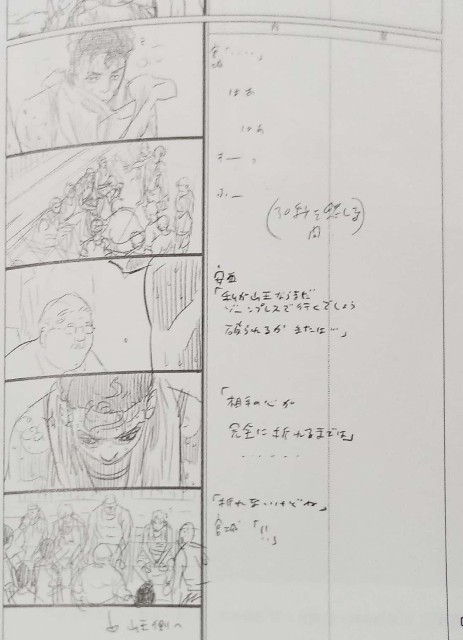 内
容
はあ
はあ
ふー
安西
「私が山王ならまだ
ゾーンプレスで行くでしょう
破られるか または…」
「相手の心が
完全に折れるまでは」
・・・・・
「折れないけどね」
宮城「!!」
山王側へ